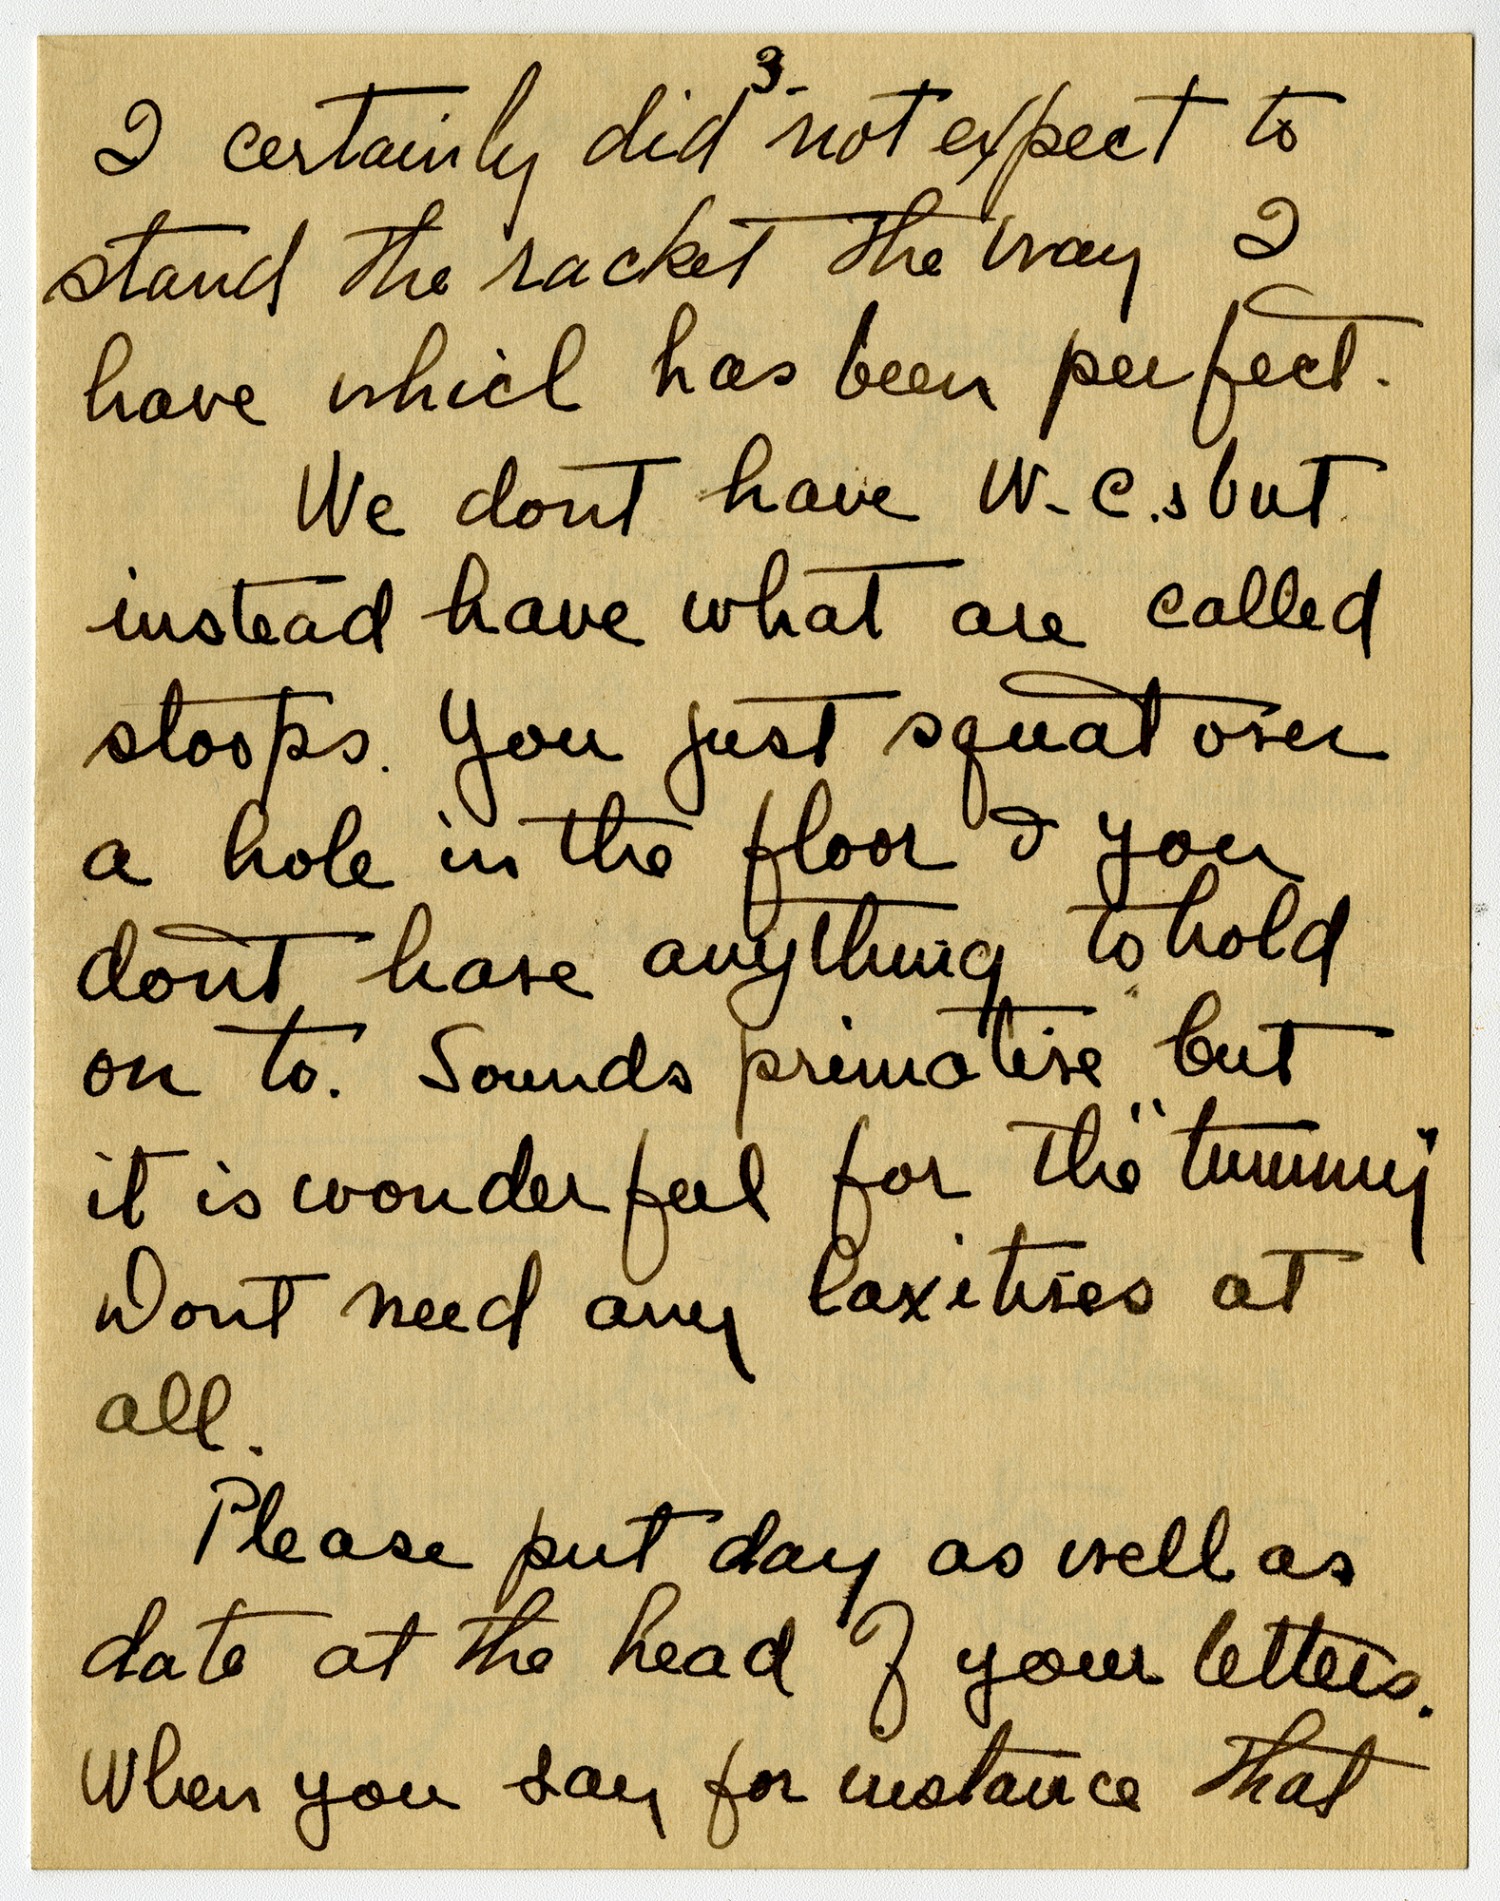 3.
I certainly did not expect to
stand the racket the way I
have which has been perfect.
We dont have W.C.s but
instead have what are called
stoops. You just squat over
a hole in the floor & you
dont have anything to hold
on to. Sounds primative but
it is wonderful for the "tummy"
Dont need any laxitives at
all.
Please put day as well as
date at the head of your letters.
When you say for instance that